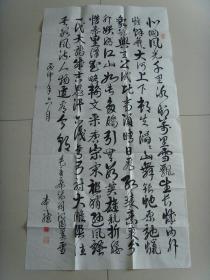 北国风光千里冰封万里雪飘望长城内外
惟余莽莽大河上下顿失滔滔山舞银蛇原驰蜡
象欲与天公试比高须晴日看红装素裹分
外妖娆江山如此多娇引无数英雄竞折腰
惜秦皇汉武略输文采唐宗宋祖稍逊风骚
一代天骄成吉思汗只识弯弓射大雕俱往
矣数风流人物还看今朝
毛主席词沁园春雪
年六月